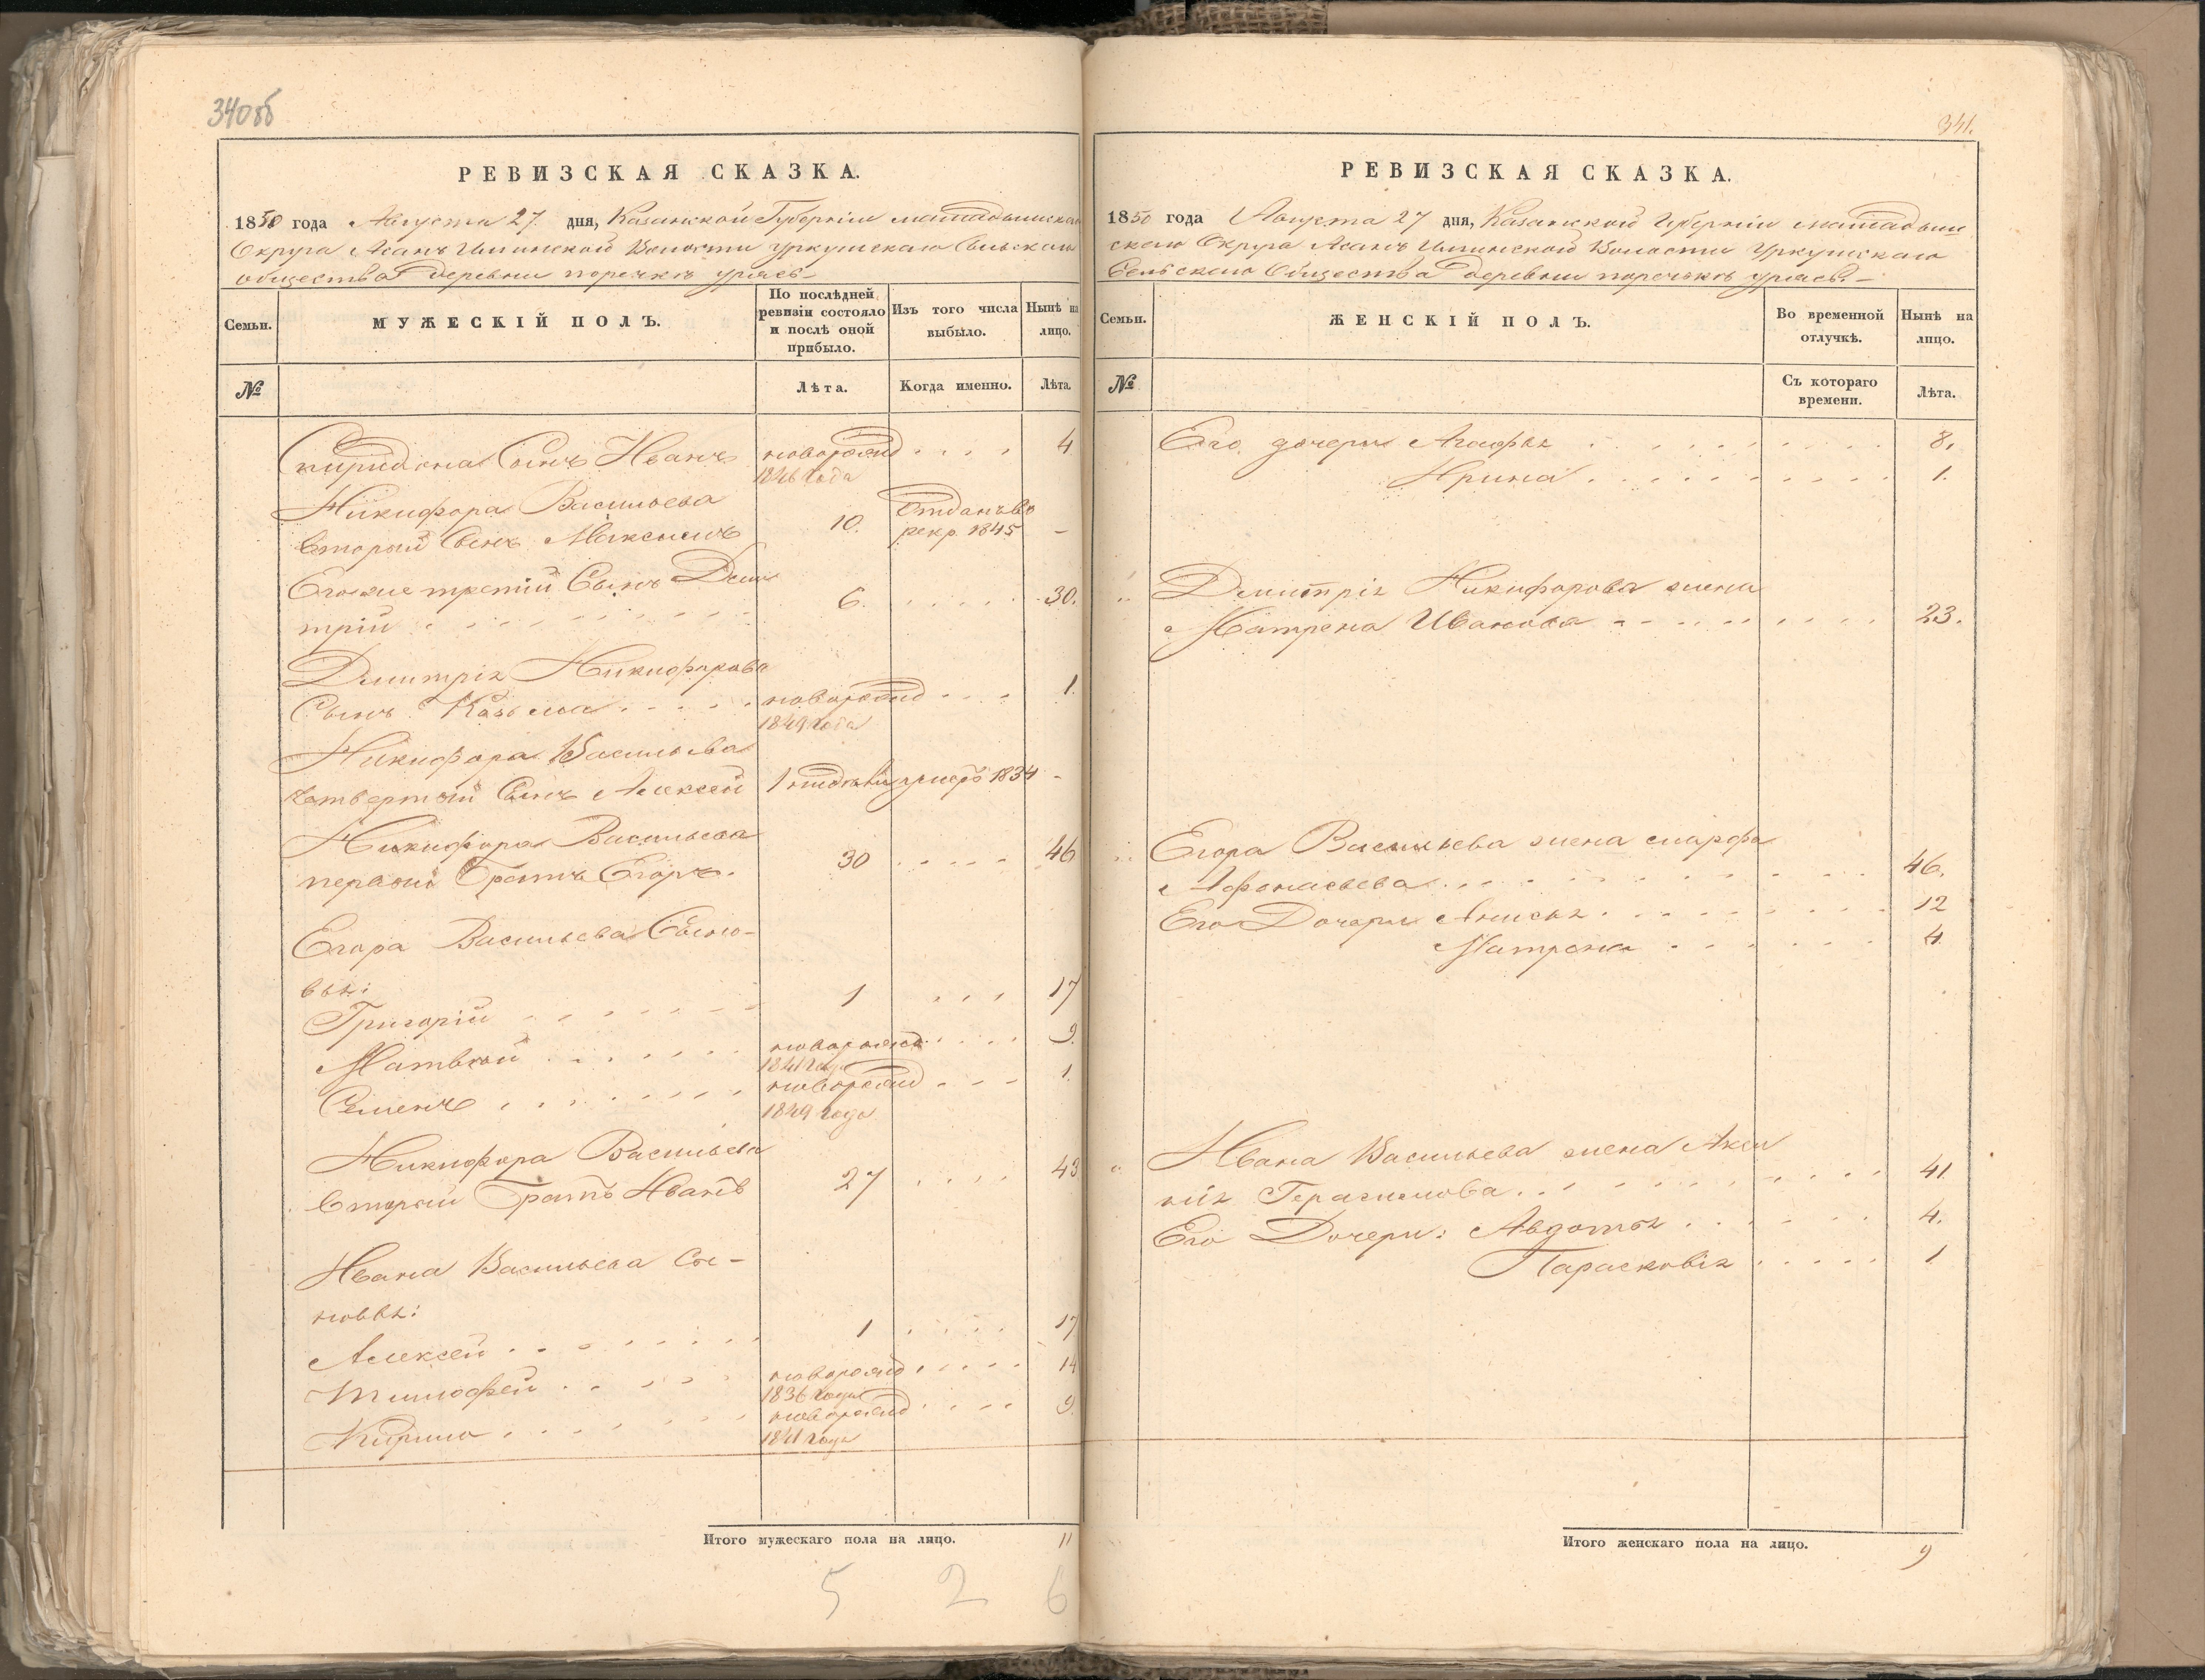 340об
РЕВИЗСКАЯ СКАЗКА.
1850 года Августа 27 дня, Казанской Губернии мамадышскаго
Округа Асанъ Илгинской Волости Уркушскаго Сельскаго
общества деревни поречькъ
Семьи.
МУЖЕСКІЙ ПОЛЪ.
По послѣдней ревизіи состояло и послѣ оной прибыло.
Изъ того числа выбыло.
Нынѣ на лицо.
№
Лѣта.
Когда именно.
Лѣта.
Спиридона Сынъ Иванъ новорожд 4
1846 года
Никифора Васильева
второй Сынъ Максимъ 10. отданъ во рекр. 1845 -
Егоже третій Сынъ Дми
трій 6. 30.
Дмитрія Никифорова
Сынъ Козьма новорожд 1.
1849 года
Никифора Васильева
четвертой Сынъ Алексей 1 умеръ 1834 -
Никифора Васильева
первой Братъ Егоръ. 30 46
Егора Васильева Сыно-
вья:
Григорій 1 17
Матвей новорожд 9.
1841 года
Семенъ новорожд 1.
1849 года
Никифора Васильева
второй Братъ Иванъ 27 43
Ивана Васильева Сы-
новья:
Алексей 1 17
Тимофей новорожд 14
1836 года
Кирило новорожд 9.
1841 года
Итого мужескаго пола на лицо. 11
5 2 6
341.
РЕВИЗСКАЯ СКАЗКА.
1850 года Августа 27 дня, Казанской Губерніи мамадыш
скаго Округа Асанъ Илгинской Волости Уркушскаго
Сельскаго Общества деревни поречькъ
Семьи.
ЖЕНСКІЙ ПОЛЪ.
Во временной отлучкѣ.
Нынѣ на лицо.
№
Съ котораго времени.
Лѣта.
Его дочери Агафья 8.
Ирина 1.
Дмитрія Никифорова жена
Матрена Иванова 23.
Егора Васильева жена марфа
Афонасьева 46.
Его Дочери Анисья 12
Матрена 4
Ивана Васильева жена Акси
нія Герасимова 41
Его Дочери: Авдотья 4.
Парасковія 1
Итого женскаго пола на лицо. 9